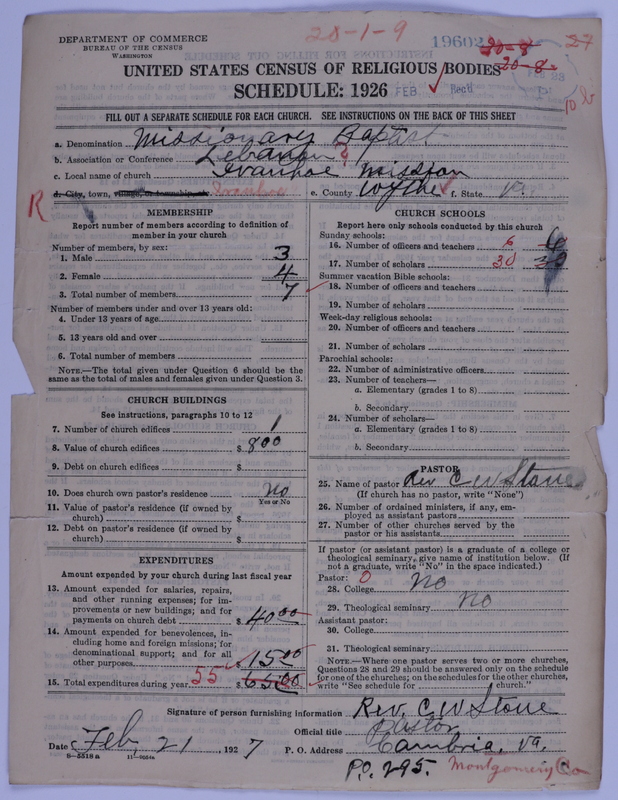 28-1-9
DEPARTMENT OF COMMERCE
BUREAU OF THE CENSUS
WASHINGTON
19602 20-8 27
20-8
UNITED STATES CENSUS OF RELIGIOUS BODIES
SCHEDULE: 1926 FEB Rec'd
FEB 23
10 b
FILL OUT A SEPARATE SCHEDULE FOR EACH CHURCH. SEE INSTRUCTIONS ON THE BACK OF THIS SHEET
a. Denomination Missionary Baptist
b. Association or Conference Lebanon ?
c. Local name of church Ivanhoe Mission
d. City, town, village, or township, etc. Ivanhoe e. County Wythe f. State Va.
R
MEMBERSHIP
Report number of members according to definition of
member in your church
Number of members, by sex:
1. Male 3
2. Female 4
3. Total number of members 7
Number of members under and over 13 years old:
4. Under 13 years of age
5. 13 years old and over
6. Total number of members
NOTE.—The total given under Question 6 should be the
same as the total of males and females given under Question 3.
CHURCH BUILDINGS
See instructions, paragraphs 10 to 12
7. Number of church edifices 1
8. Value of church edifices $ 800
9. Debt on church edifices $
10. Does church own pastor's residence no
Yes or No
11. Value of pastor's residence (if owned by
church) $
12. Debt on pastor's residence (if owned by
church) $
EXPENDITURES
Amount expended by your church during last fiscal year
13. Amount expended for salaries, repairs,
and other running expenses; for im-
provements or new buildings; and for
payments on church debt $ 40 00
14. Amount expended for benevolences, in-
cluding home and foreign missions; for
denominational support; and for all
other purposes 15 00
15. Total expenditures during year 55 $ 65 00
CHURCH SCHOOLS
Report here only schools conducted by this church
Sunday schools:
16. Number of officers and teachers 6 6
17. Number of scholars 30 30
Summer vacation Bible schools:
18. Number of officers and teachers
19. Number of scholars
Week-day religious schools:
20. Number of officers and teachers
21. Number of scholars
Parochial schools:
22. Number of administrative officers
23. Number of teachers—
a. Elementary (grades 1 to 8)
b. Secondary
24. Number of scholars—
a. Elementary (grades 1 to 8)
b. Secondary
PASTOR
25. Name of pastor Rev C W Stone
(If church has no pastor, write "None")
26. Number of ordained ministers, if any, em-
ployed as assistant pastors
27. Number of other churches served by the
pastor or his assistants
If pastor (or assistant pastor) is a graduate of a college or
theological seminary, give name of institution below. (If
not a graduate, write "No" in the space indicated.)
Pastor: 0
28. College No
29. Theological seminary No
Assistant pastor:
30. College
31. Theological seminary
NOTE.—Where one pastor serves two or more churches,
Questions 28 and 29 should be answered only on the schedule
for one of the churches; on the schedules for the other churches,
write "See schedule for church."
Signature of person furnishing information Rev. C W Stone
Official title Pastor
Date Feb, 21, 1927 P. O. Address Cambria, Va.
8—5518a 11—9954a
P.O. 295. Montgomery Co